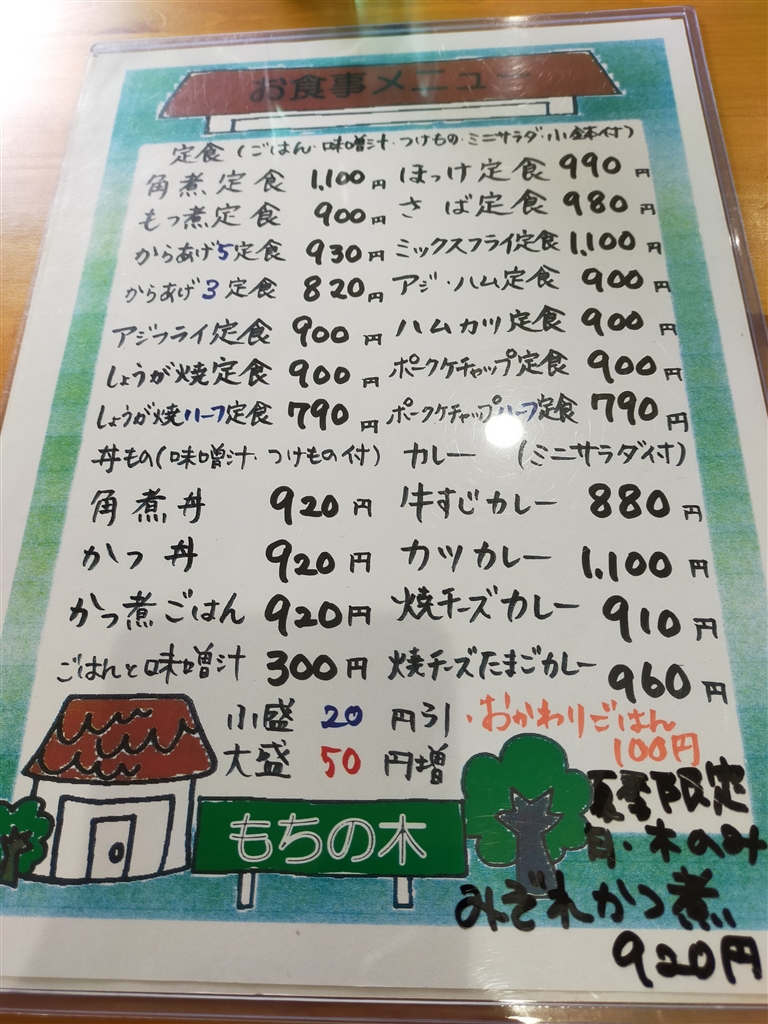 お食事メニュー
定食（ごはん・味噌汁・つけもの・ミニサラダ・小鉢付）
角煮定食 1,100円 ほっけ定食 990円
もつ煮定食 900円 さば定食 980円
からあげ5定食 930円 ミックスフライ定食 1,100円
からあげ3定食 820円 アジ・ハム定食 900円
アジフライ定食 900円 ハムカツ定食 900円
しょうが焼定食 900円 ポークケチャップ定食 900円
しょうが焼ハーフ定食 790円 ポークケチャップハーフ定食 790円
丼もの（味噌汁・つけもの付） カレー （ミニサラダ付）
角煮丼 920円 牛すじカレー 880円
かつ丼 920円 カツカレー 1,100円
かつ煮ごはん 920円 焼チーズカレー 910円
ごはんと味噌汁 300円 焼チーズたまごカレー 960円
小盛 20円引・おかわりごはん
大盛 50円増 100円
夏季限定
日・木のみ
みぞれかつ煮
920円
もちの木